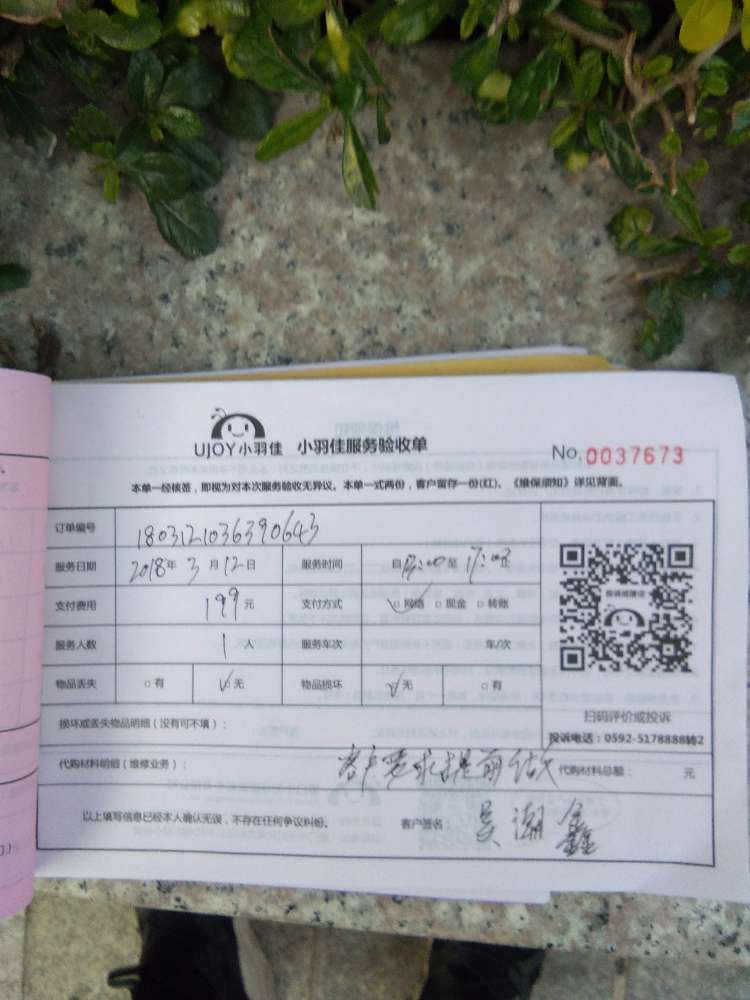 UJOY小羽佳 小羽佳服务验收单 No. 0037673
本单一经核签，即视为对本次服务验收无异议。本单一式两份，客户留存一份(红)。《维保须知》详见背面。
订单编号 1803121036390643
服务日期 2018年3月12日 服务时间 自 :00至17:00止
支付费用 199元 支付方式 ☑网络 □现金 □转账
服务人数 1人 服务车次 车/次
物品丢失 □有 ☑无 物品损坏 ☑无 □有
扫码评价或投诉
损坏或丢失物品明细（没有可不填）：
投诉电话：0592-5178888转2
代购材料明细（维修业务）： 客户要求提前 代购材料总额： 元
以上填写信息已经本人确认无误，不存在任何争议纠纷。 客户签名： 吴潮鑫